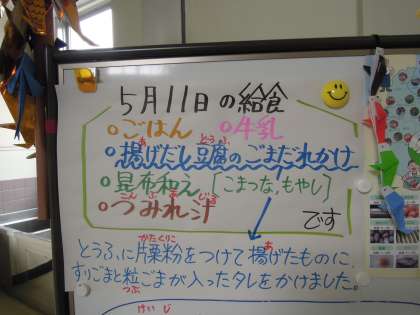 5月11日の給食
○ごはん ○牛乳
○揚げだし豆腐のごまだれかけ
○昆布和え[こまつな、もやし]
○つみれ汁
です
とうふに片栗粉をつけて揚げたものに
すりごまと粒ごまが入ったタレをかけました。